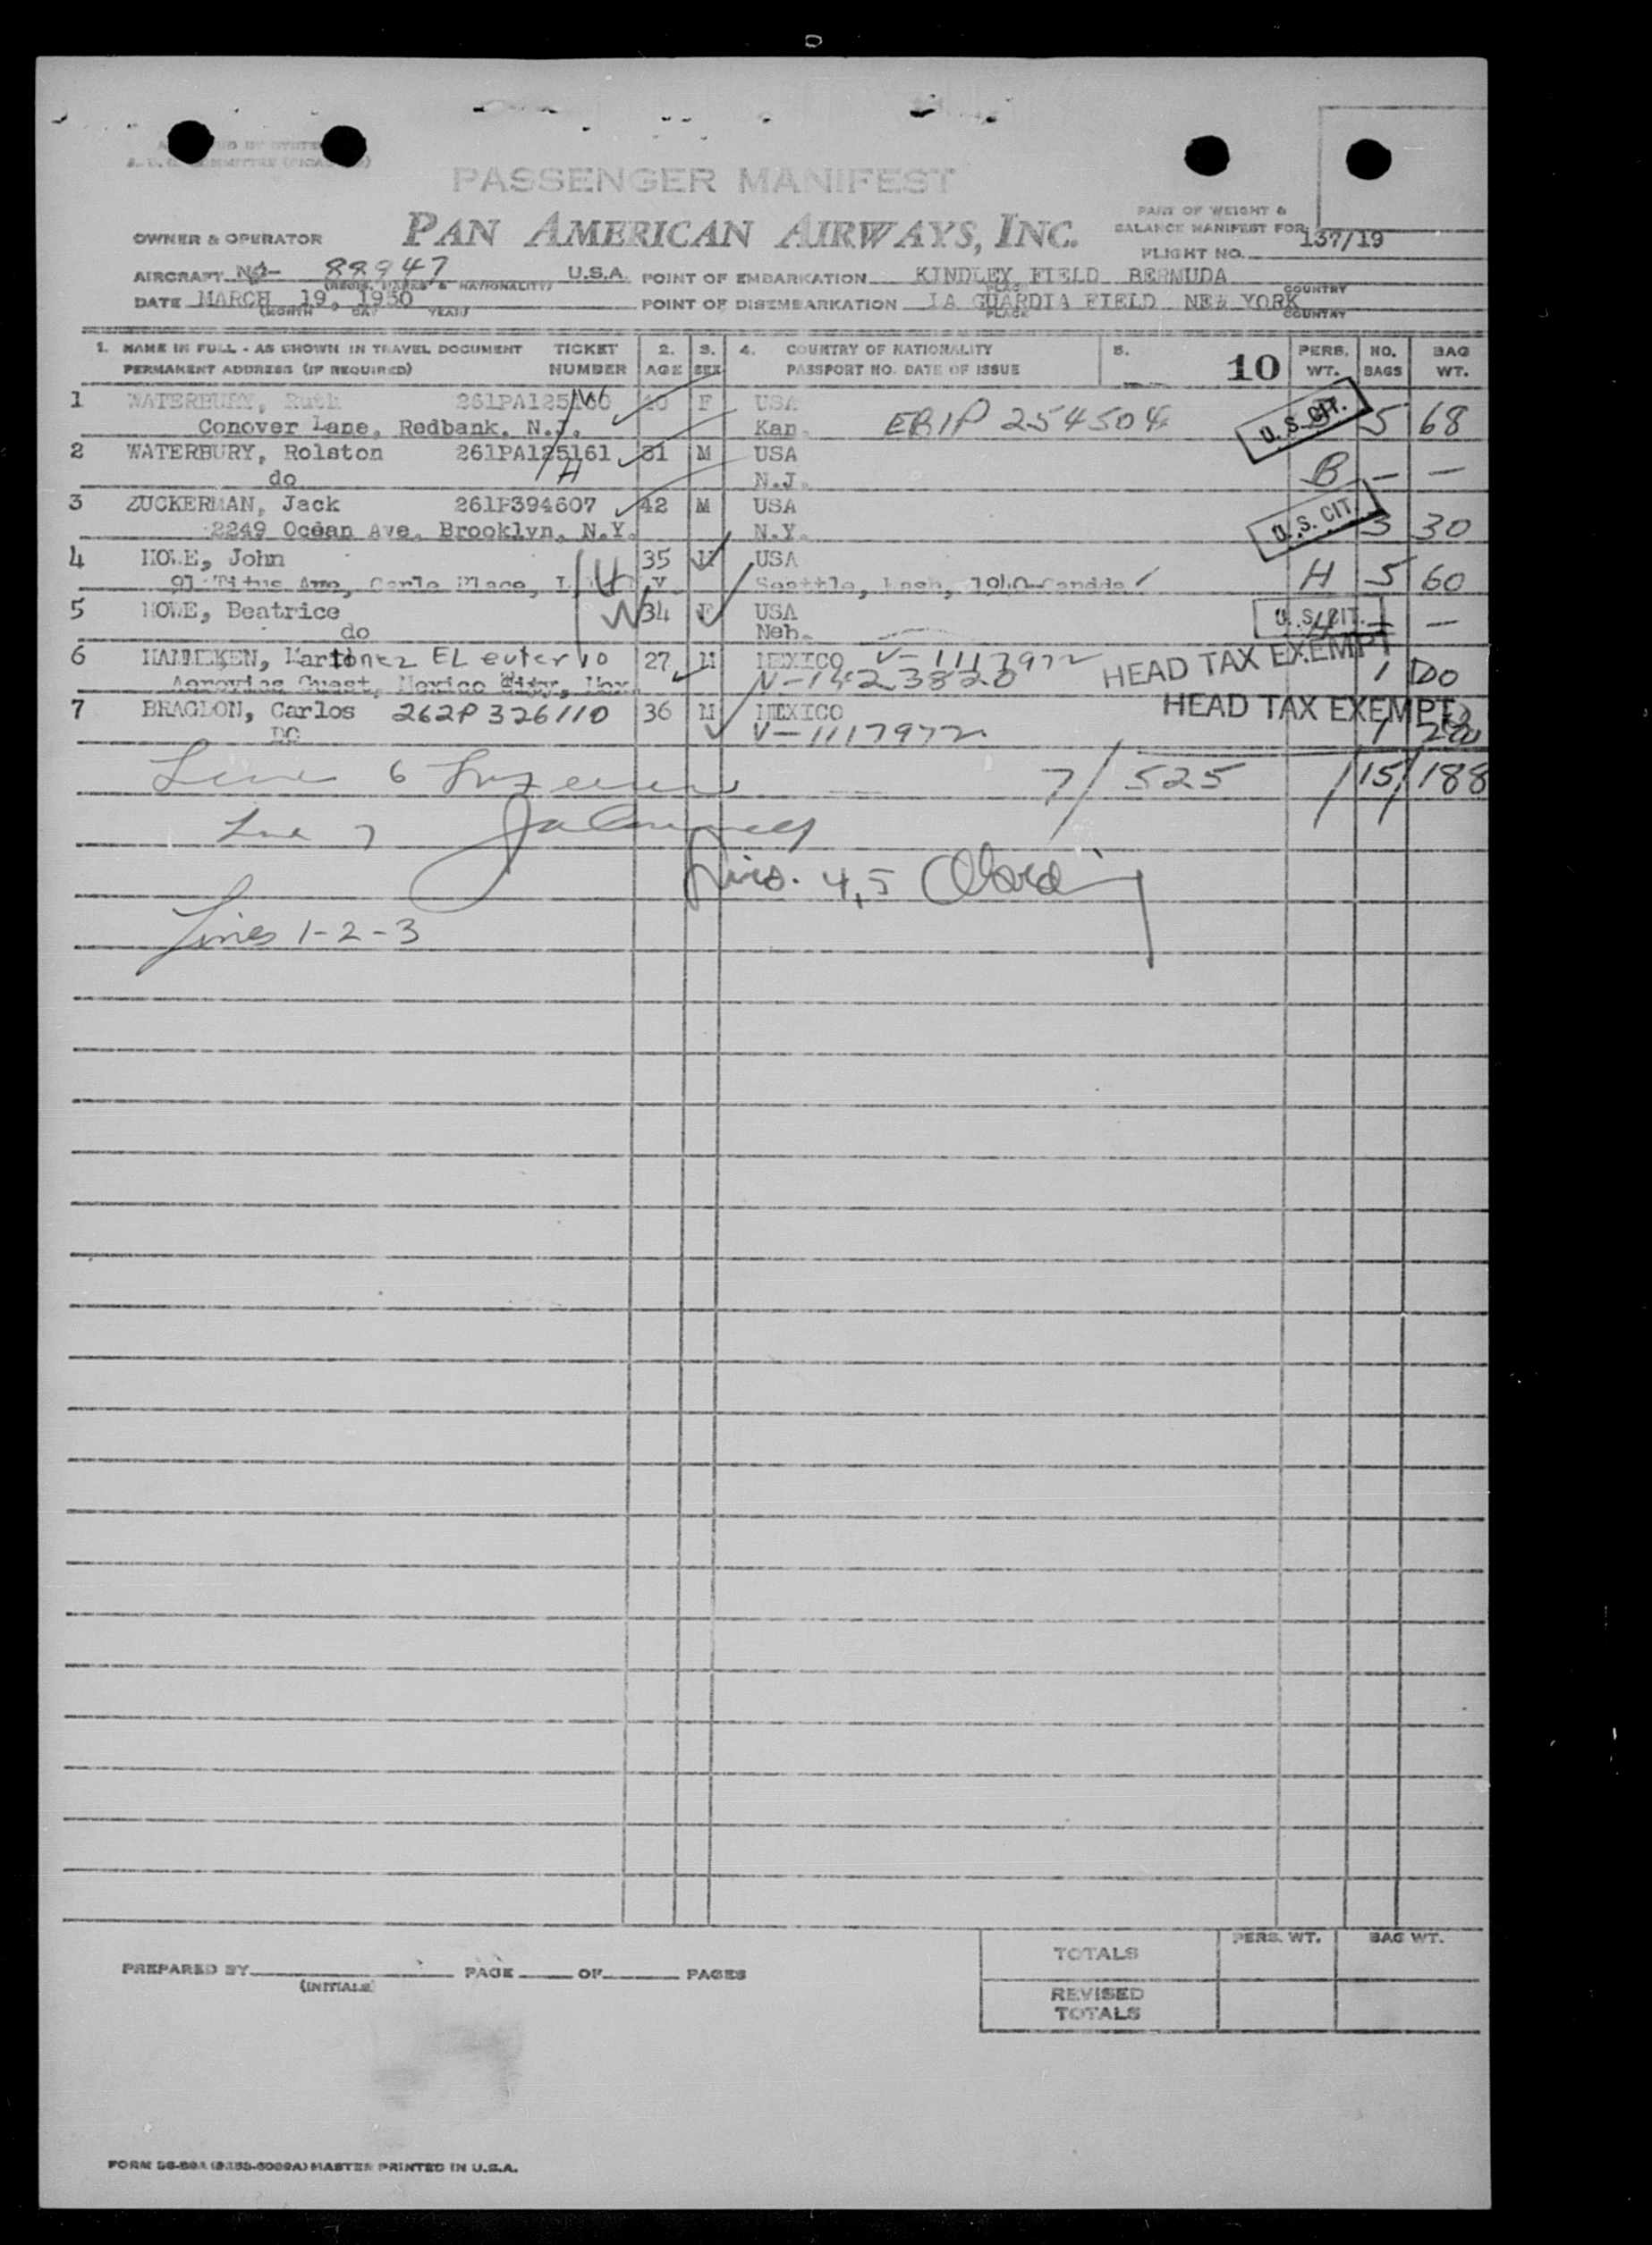 PASSENGER MANIFEST
PAN AMERICAN AIRWAYS, INC.
OWNER & OPERATOR
PART OF WEIGHT &
BALANCE MANIFEST FOR
FLIGHT NO. 137/19
AIRCRAFT 88947 U.S.A. POINT OF EMBARKATION KINDLEY FIELD BERMUDA
(REGIS. MARKS & NATIONALITY) PLACE COUNTRY
DATE MARCH 19, 1950 POINT OF DISEMBARKATION LA GUARDIA FIELD NEW YORK
(MONTH DAY YEAR) PLACE COUNTRY
1. NAME IN FULL - AS SHOWN IN TRAVEL DOCUMENT TICKET 2. 3. 4. COUNTRY OF NATIONALITY 5. PERS. NO. BAG
PERMANENT ADDRESS (IF REQUIRED) NUMBER AGE SEX PASSPORT NO. DATE OF ISSUE 10 WT. BAGS WT.
1 WATERBURY, Ruth 261PA125160 F USA
Conover Lane, Redbank, N.J. Kan. 254504 U.S. CIT. 5 68
2 WATERBURY, Rolston 261PA125161 31 M USA
do H N.J. B — —
3 ZUCKERMAN, Jack 261P394607 42 M USA
2249 Ocean Ave. Brooklyn, N.Y. N.Y. U.S. CIT. 3 30
4 HOWE, John 35 M USA
91 Titus Ave, Carle Place, Seattle, Wash, 1940 H 5 60
5 HOWE, Beatrice 34 F USA
do Neb. U.S. CIT. — —
6 HANNEKEN, EL euter io 27 M MEXICO V-1117972
Aerovias Guest, Mexico City, Mex V-1423820 HEAD TAX EXEMPT 1
7 BRAGDON, Carlos 262P326110 36 M MEXICO HEAD TAX EXEMPT
DO V-1117972 1
Line 6 7/ 525 / 15/ 188
Line 7
Lines 4,5
Lines 1-2-3
TOTALS PERS. WT. BAG WT.
PREPARED BY PAGE OF PAGES
(INITIALS)
REVISED
TOTALS
MASTER PRINTED IN U.S.A.